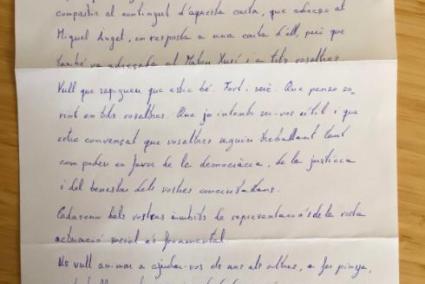 compartir al contingut d'aquesta carta, que adreço al
Miguel Angel, en resposta a una carta d'ell, però que
també va adreçada al Mateu Xurí i a tots vosaltres.
Vull que sapigueu que estic bé. Fort. Serè. Que penso so-
vint en tots vosaltres. Que jo intento ser-vos útil i que
estic convençut que vosaltres seguiu treballant tant
com podeu en favor de la democràcia, de la justícia
i del benestar dels vostres conciutadans.
Cadascun dels vostres àmbits de representació i de la vostra
actuació social és fonamental.
Us vull animar a ajudar-vos els uns als altres, a fer pinya,